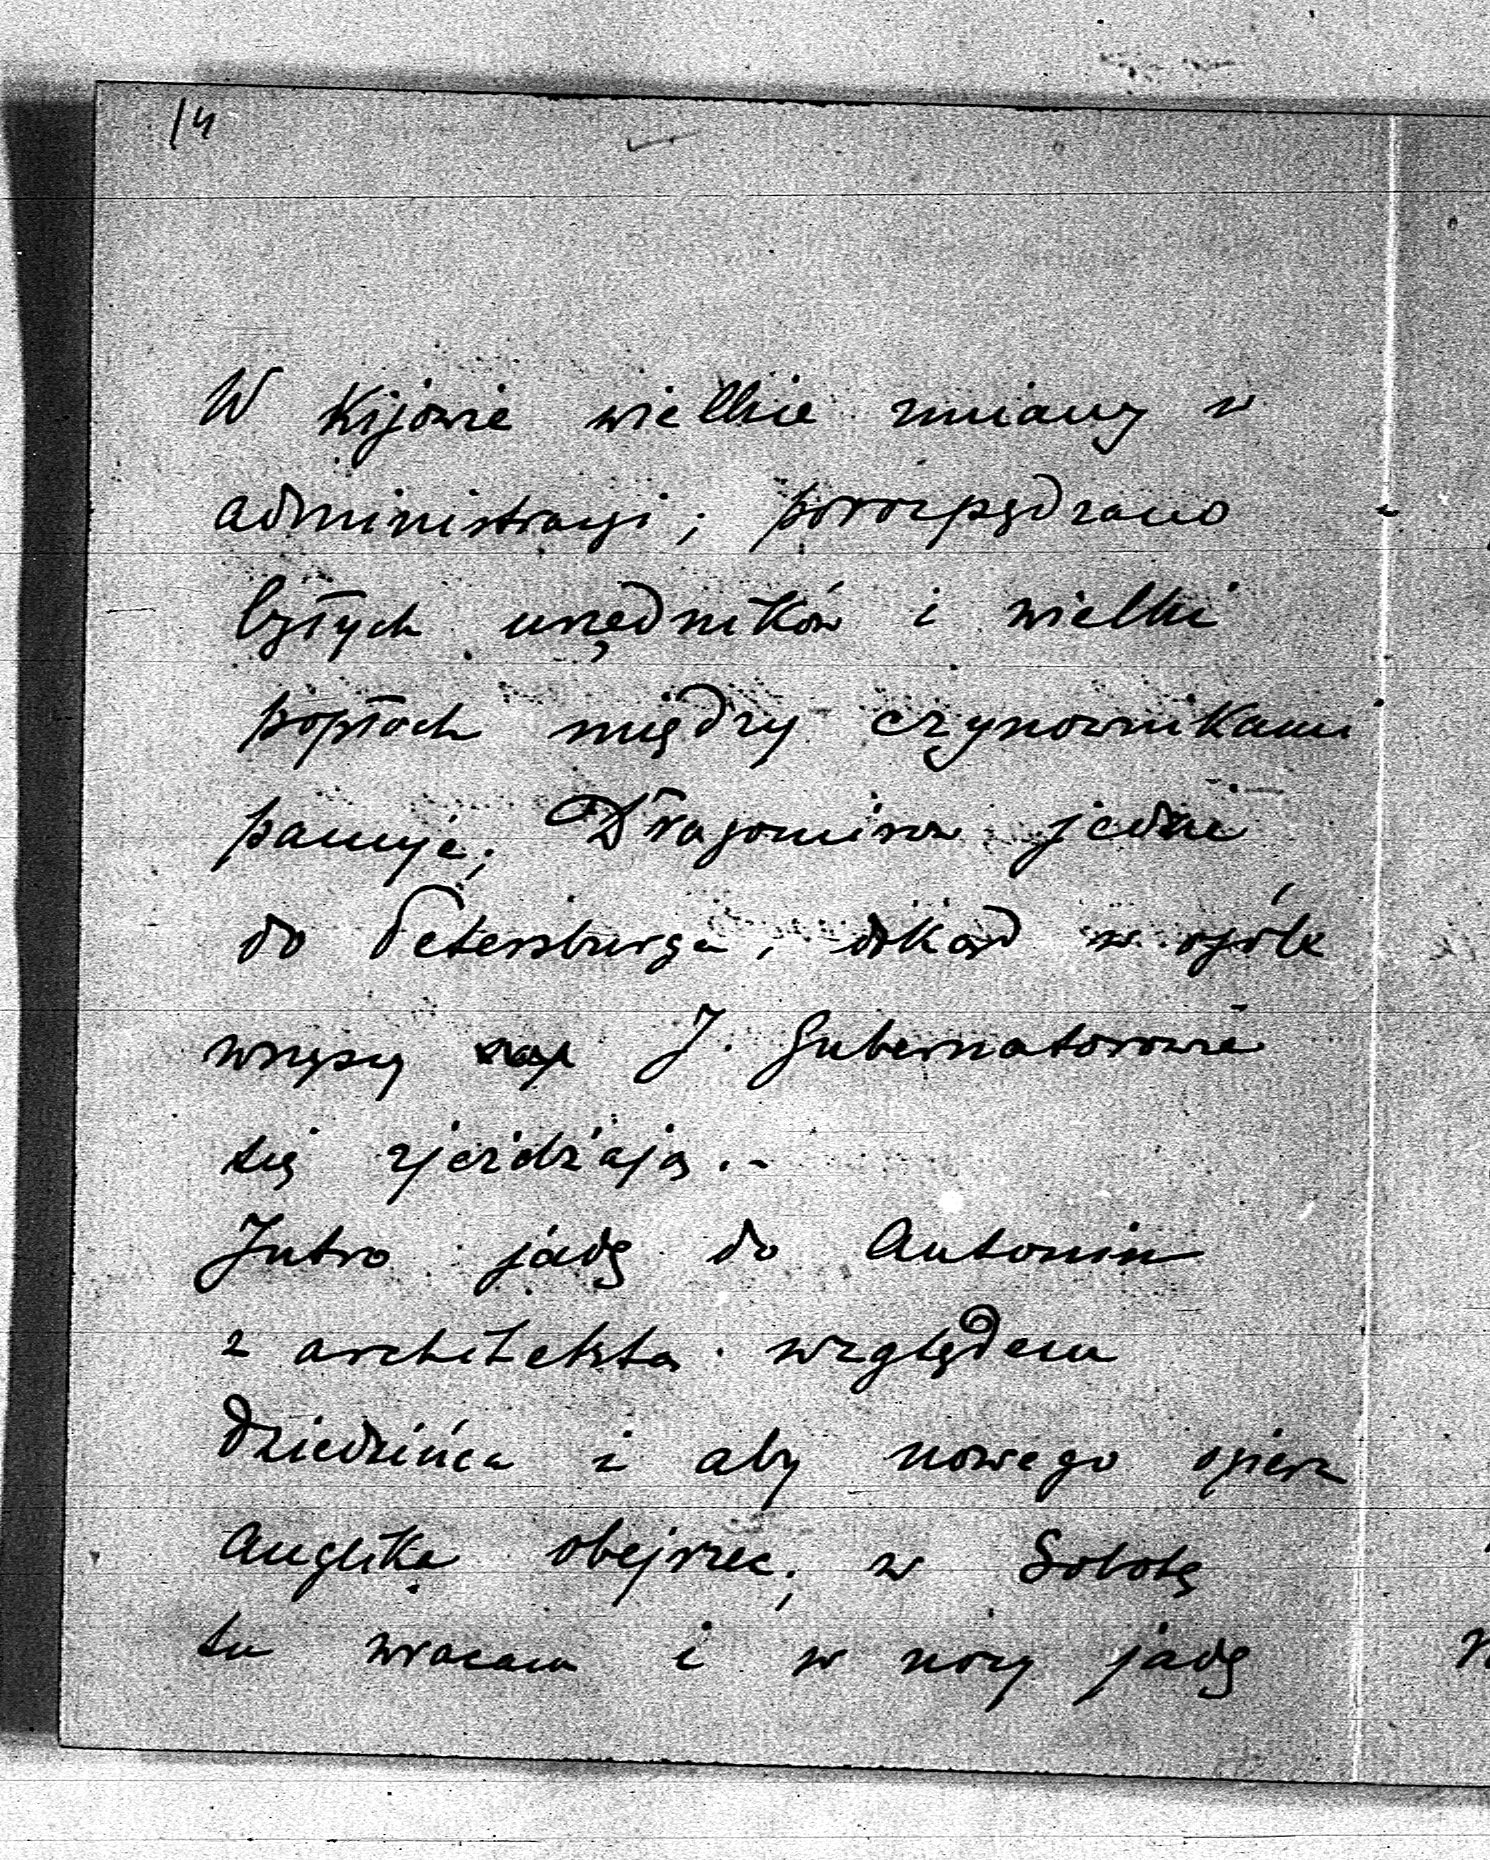 14
W Kijowie wielkie zmiany w
administracyi; porozpędzano
byłych urzędników i wielki
popłoch między czynownikami
panuje; Dragomirow jedzie
do Petersburga, dokąd w ogóle
wszyscy J. Gubernatorowie
się zjeżdżają.-
Jutro jadę do Antonin
z architektą względem
dziedzińca i aby nowego
Anglika obejrzeć; w Sobotę
tu wracam i w nocy jadę